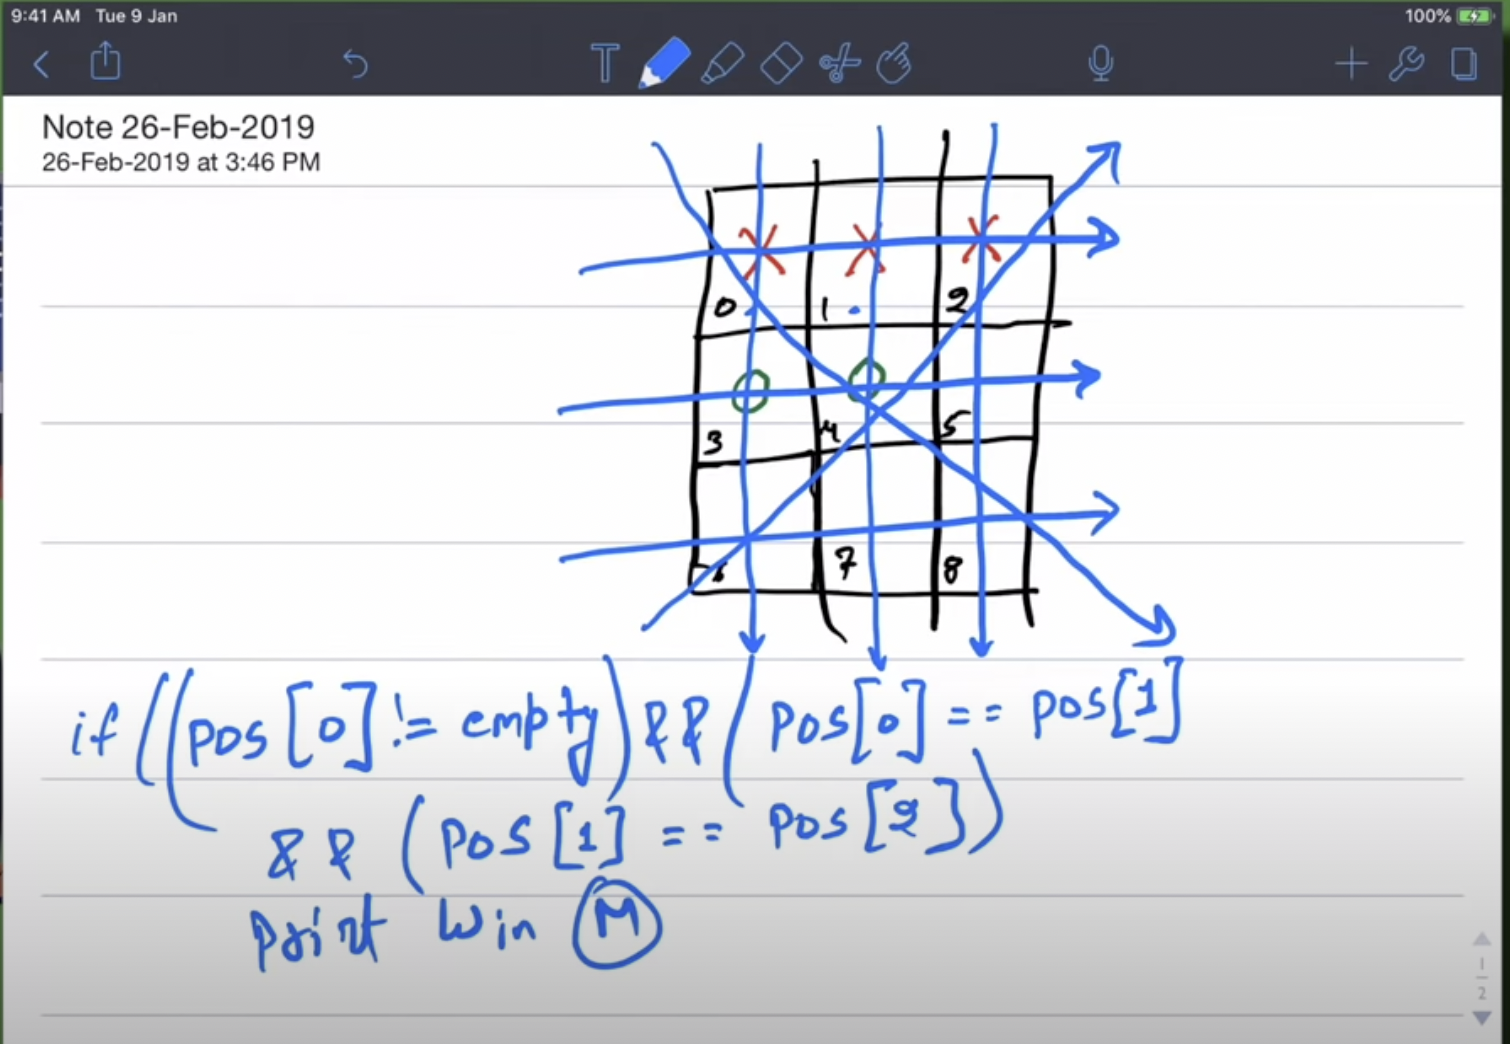 9:41 AM Tue 9 Jan
100%
T
Note 26-Feb-2019
26-Feb-2019 at 3:46 PM
0 1 2
3 4 5
6 7 8
if ((pos[0] != empty) && (pos[0] == pos[1]
&& (pos[1] == pos[2])
print win M
1
2